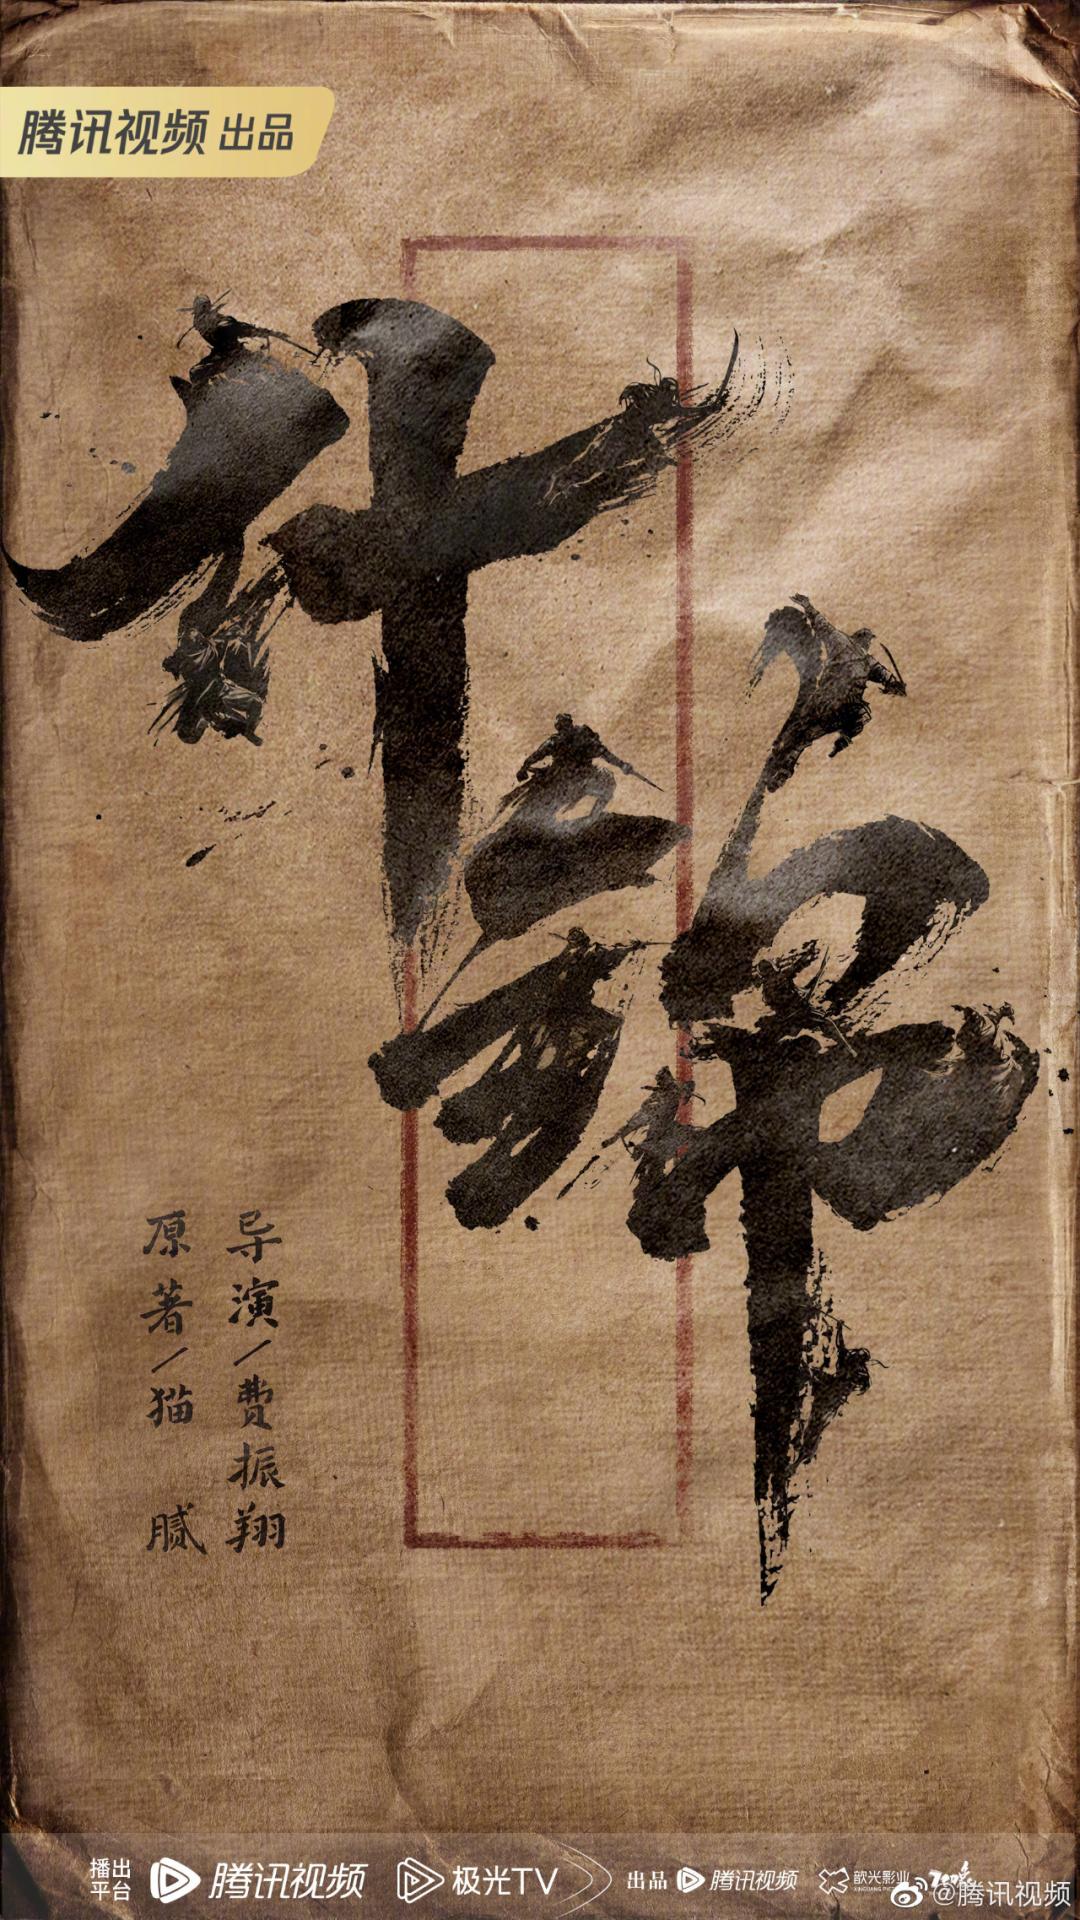 腾讯视频 出品
什锦
导演/费振翔
原著/猫 腻
播出平台
腾讯视频
极光TV
出品
腾讯视频
歆光影业
@腾讯视频